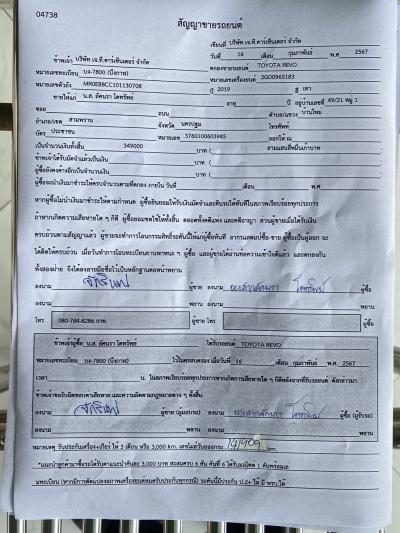 04738
สัญญาขายรถยนต์
เขียนที่ บริษัท เจ.ที.คาร์เซ็นเตอร์ จำกัด
วันที่ 16 เดือน กุมภาพันธ์ พ.ศ 2567
ข้าพเจ้า บริษัท เจ.ที.คาร์เซ็นเตอร์ จำกัด ตกลงขายรถยนต์ TOYOTA REVO
หมายเลขทะเบียน บจ-7800 (บึงกาฬ) หมายเลขเครื่องยนต์ 2GD0965183
หมายเลขตัวถัง MR0EB8CC101130708 ปี 2019 สี เทา
ขายให้แก่ น.ส. ลัคนรา โตทรัพย์ อายุ ปี อยู่บ้านเลขที่ 49/21 หมู่ 1
ซอย ถนน ตำบล/แขวง บ้านใหม่
อำเภอ/เขต สามพราน จังหวัด นครปฐม โทรศัพท์
บัตร ประชาชน หมายเลข 3760100603945 ออกให้ ณ
เป็นจำนวนเงินทั้งสิ้น 349000 บาท ( สามแสนสี่หมื่นเก้าบาท
ข้าพเจ้าได้รับมัดจำแล้วเป็นเงิน บาท (
ผู้ซื้อยังคงค้างอีกเป็นจำนวนเงิน บาท (
ผู้ซื้อจะนำเงินมาชำระให้ครบจำนวนตามที่ตกลง ภายใน วันที่ เดือน พ.ศ
หากผู้ซื้อไม่นำเงินมาชำระให้ตามกำหนด ผู้ซื้อยินยอมให้ริบเงินมัดจำและคืนรถให้ทันทีในสภาพเรียบร้อยทุกประการ
ถ้าหากเกิดความเสียหายใด ๆ ก็ดี ผู้ซื้อยอมชดใช้ให้ทั้งสิ้น ตลอดทั้งคดีแพ่ง และคดีอาญา ส่วนผู้ขายเมื่อได้รับเงิน
ครบถ้วนตามสัญญาแล้ว ผู้ขายจะทำการโอนกรรมสิทธิ์รถคันนี้ให้แก่ผู้ซื้อทันที อากรแสตมป์ซื้อ-ขาย ผู้ซื้อเป็นผู้ออก จะ
ได้คิดให้ครบถ้วน เมื่อวันทำการโอนทะเบียนยานพาหนะ ๆ ผู้ซื้อ และผู้ขายได้อ่านข้อความเข้าใจดีแล้ว และตกลงกัน
ทั้งสองฝ่าย จึงได้ลงลายมือชื่อไว้เป็นหลักฐานต่อหน้าพยาน
ลงนาม ผู้ขาย ลงนาม โตทรัพย์ ผู้ซื้อ
ลงนาม พยาน ลงนาม พยาน
โทร 080-784-8286 ผู้ขาย โทร ผู้ซื้อ
ข้าพเจ้าผู้ซื้อ น.ส. ลัคนรา โตทรัพย์ ได้รับรถยนต์ TOYOTA REVO
หมายเลขทะเบียน บจ-7800 (บึงกาฬ) ไว้ในครอบครอง เมื่อวันที่ 16 เดือน กุมภาพันธ์ พ.ศ. 2567
เวลา น. ในสภาพเรียบร้อยทุกประการหากเกิดการเสียหายใด ๆ ก็ดีหลังจากที่รับรถยนต์ ดังกล่าวมา
ข้าพเจ้าขอรับผิดชอบค่าเสียหาย และความผิดตามกฎหมายต่าง ๆ ทั้งสิ้น
ลงนาม ผู้ขาย (ผู้มอบรถ) ลงนาม โตทรัพย์ ผู้ซื้อ (ผู้รับรถ)
ลงนาม พยาน ลงนาม พยาน
หมายเหตุ รับประกันเครื่อง+เกียร์ ให้ 3 เดือน หรือ 3,000 km. เลขไมล์วันออกรถ 141909 km.
*แนะนำลูกค้ามาซื้อรถได้รับค่าแนะนำคันละ 3,000 บาท สะสมครบ 6 คัน คันที่ 6 ได้รับมอไซค์ 1 คันพร้อมเล่ม